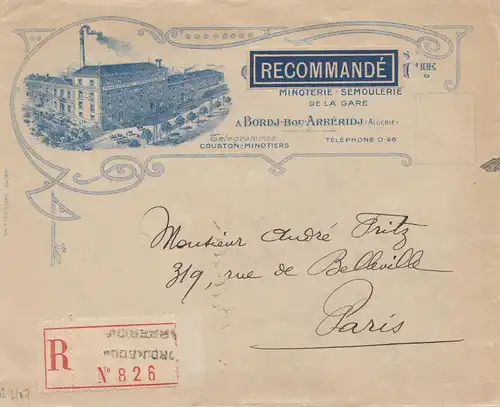 RECOMMANDÉ
MINOTERIE - SEMOULERIE
DE LA GARE
A BORDJ-BOU-ARRÉRIDJ (ALGERIE)
Télégrammes
COUSTON-MINOTIERS
TÉLÉPHONE 0-46
Monsieur André Fritz
319, rue de Belleville
Paris
R
BORDJ-BOU-
ARRERIDJ
N° 826